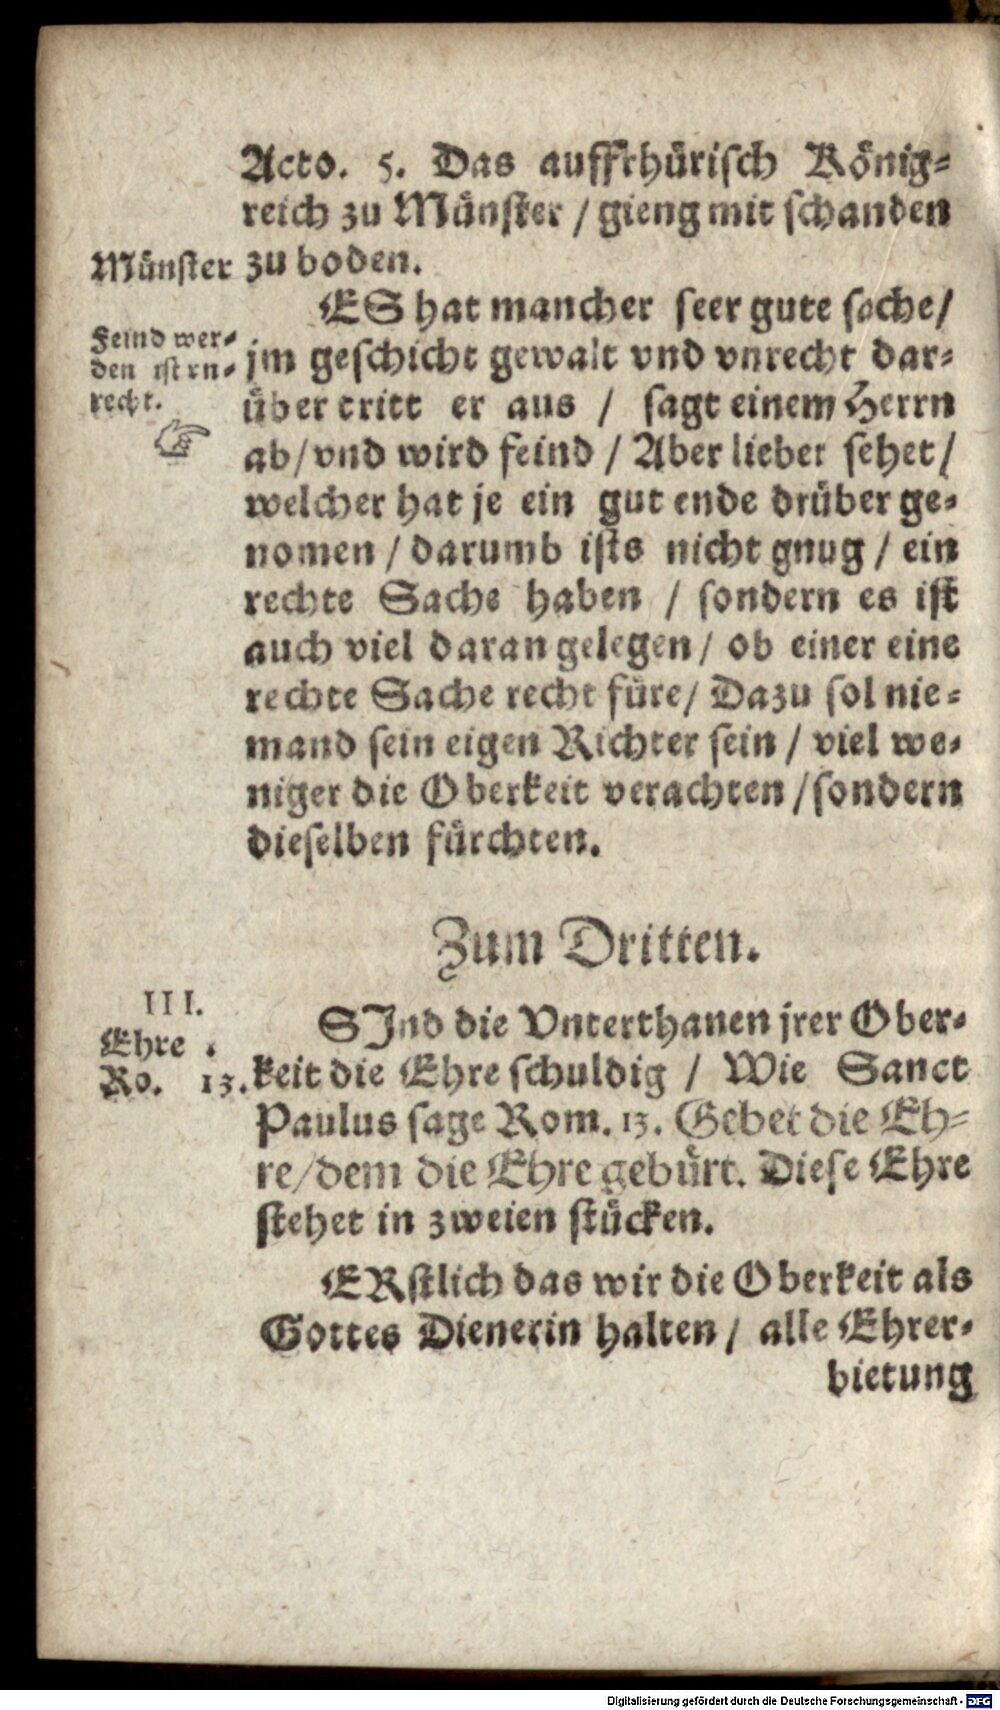 Acto. 5. Das auffrhürisch König-
reich zu Münster / gieng mit schanden
Münster zu boden.
ES hat mancher seer gute sache /
Feind wer-
den ist vn-
recht.
jm geschicht gewalt vnd vnrecht dar-
über tritt er aus / sagt einem Herrn
ab / vnd wird feind / Aber lieber sehet /
welcher hat je ein gut ende drüber ge-
nomen / darumb ists nicht gnug / ein
rechte Sache haben / sondern es ist
auch viel daran gelegen / ob einer eine
rechte Sache recht füre / Dazu sol nie-
mand sein eigen Richter sein / viel we-
niger die Oberkeit verachten / sondern
dieselben fürchten.
Zum Dritten.
III.
Ehre .
Ro. 13.
SInd die Vnterthanen jrer Ober-
keit die Ehre schuldig / Wie Sanct
Paulus sage Rom. 13. Gebet die Eh-
re / dem die Ehre gebürt. Diese Ehre
stehet in zweien stücken.
ERstlich das wir die Oberkeit als
Gottes Dienerin halten / alle Ehrer-
bietung
Digitalisierung gefördert durch die Deutsche Forschungsgemeinschaft - DFG